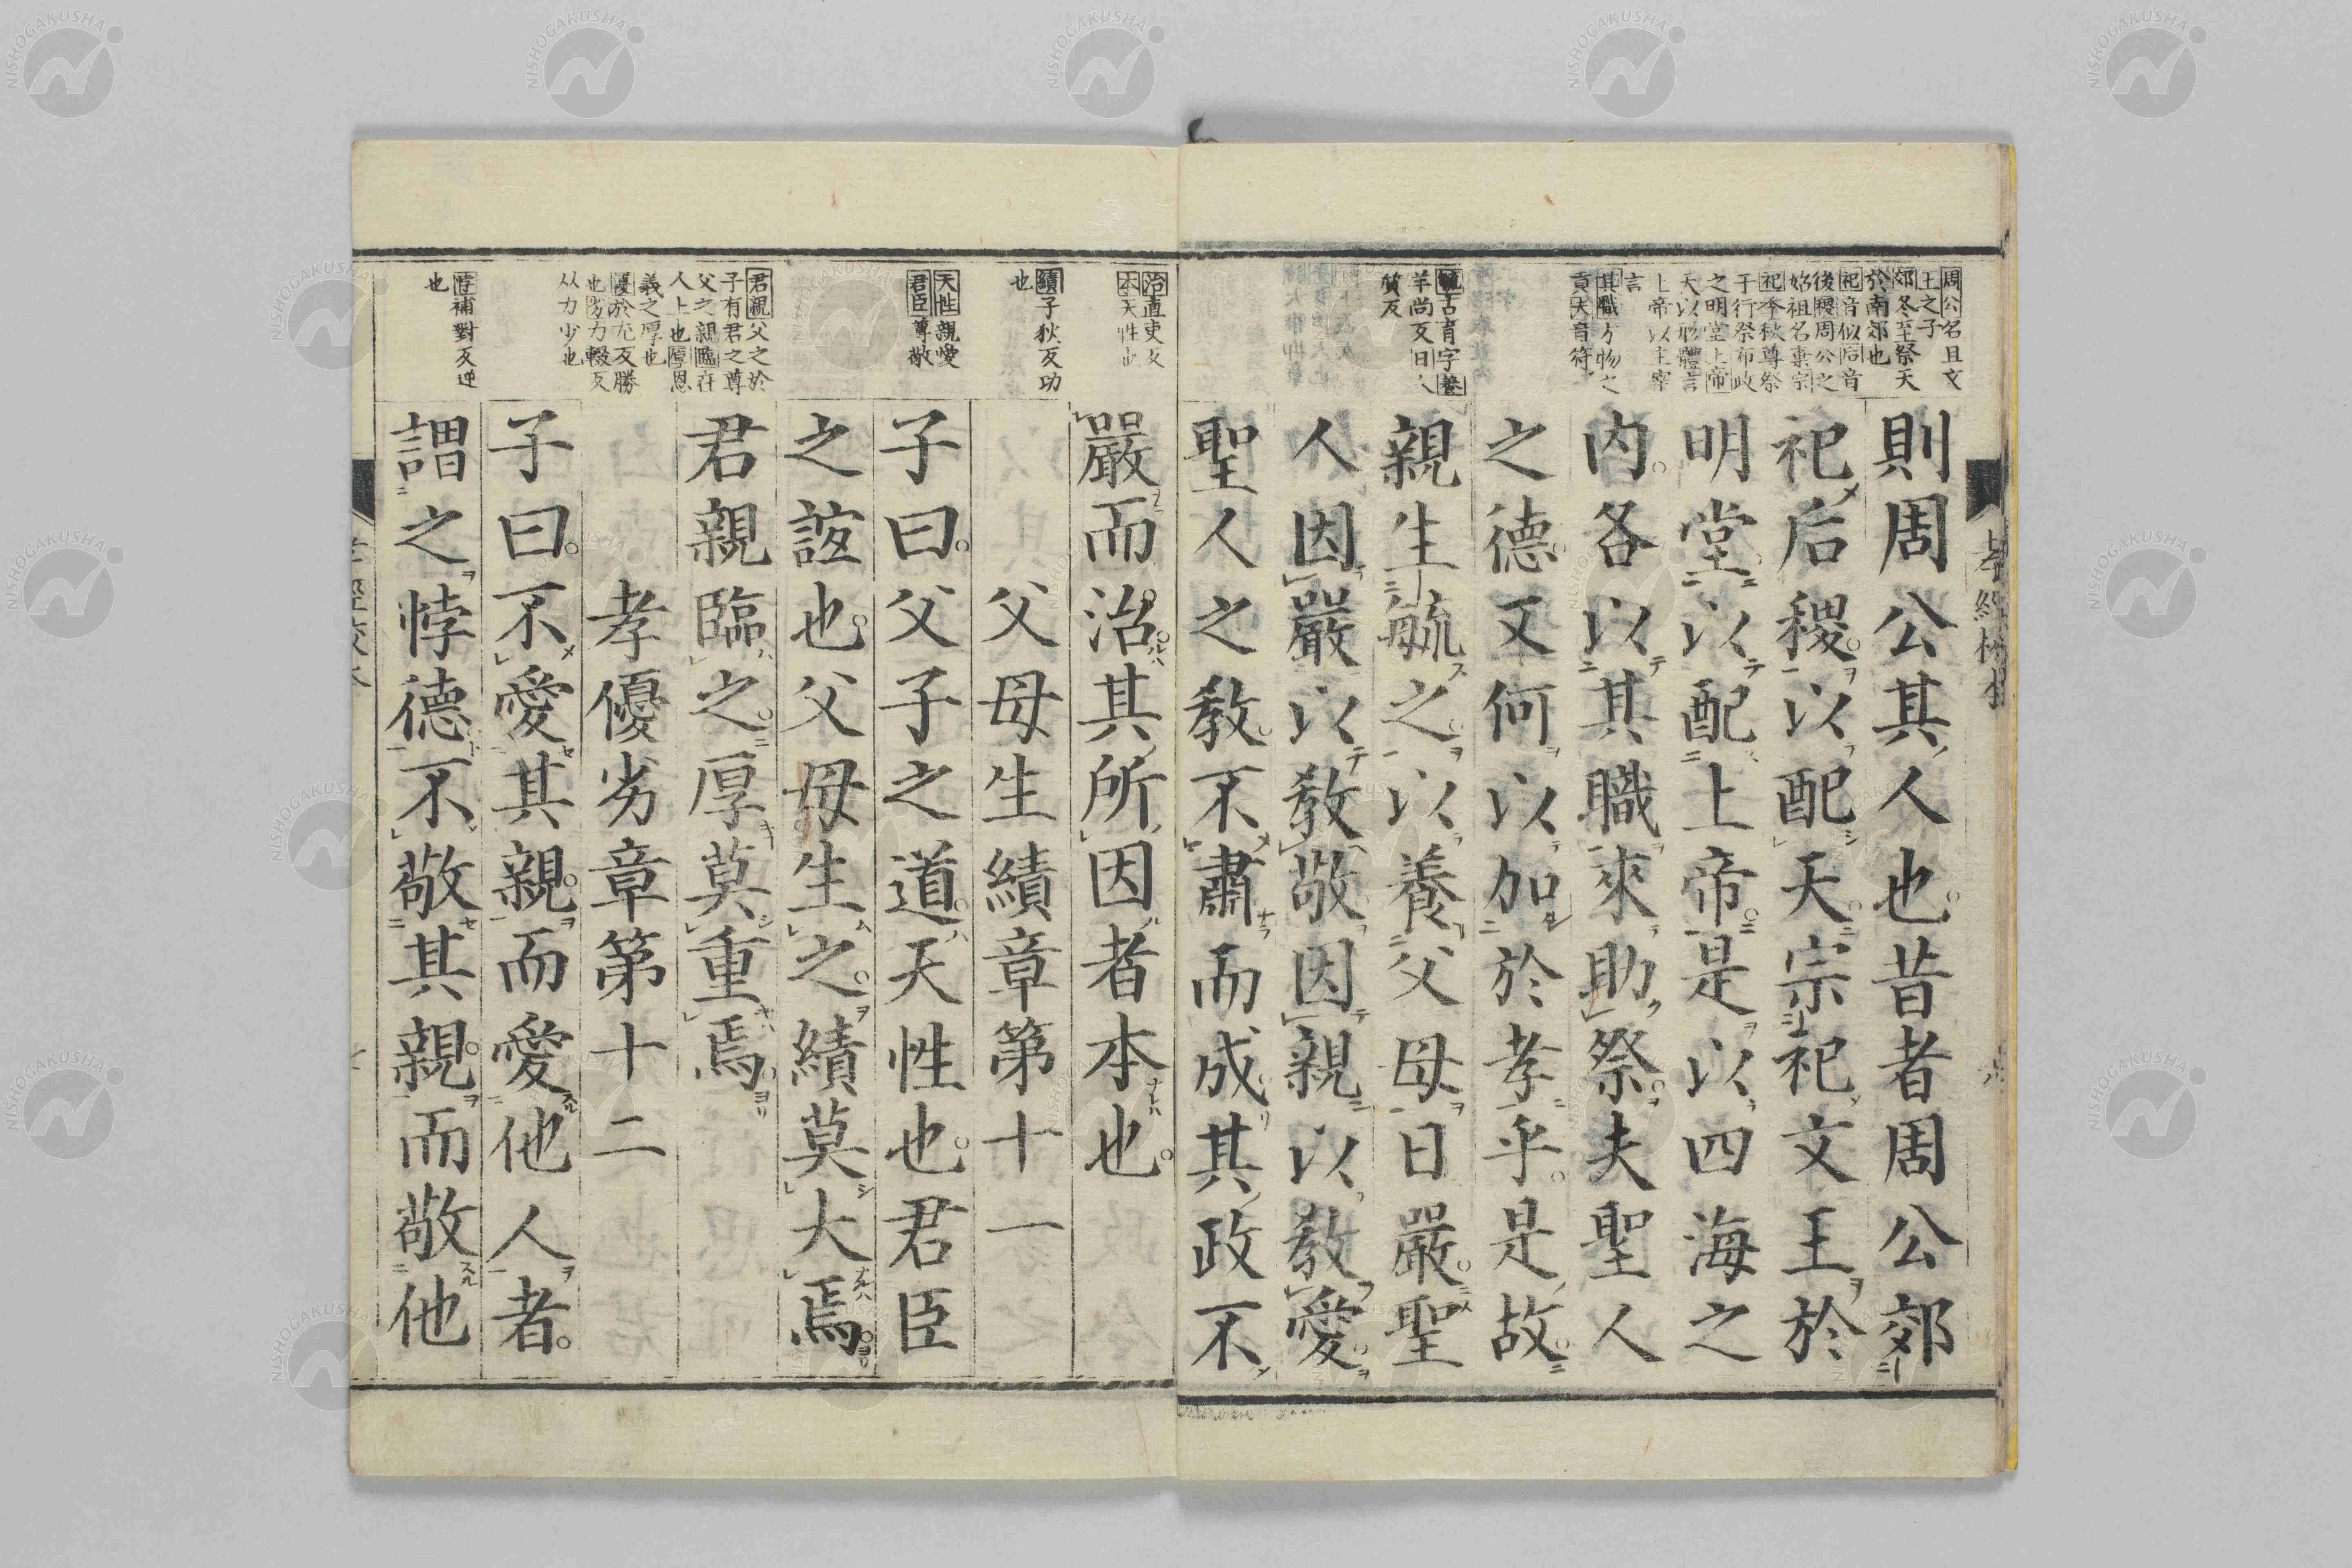 周公名旦文
王之子
郊冬至祭天
於南郊也
祀音似后音
後稷周公之
始祖名棄宗
祀季秋尊祭
于行祭布政
之明堂上帝
天以形體言
上帝以主宰
言
其職方物之
貢夫音符
毓古育字養
羊尚反日人
質反
則周公其人也昔者周公郊
祀后稷以配天宗祀文王於
明堂以配上帝是以四海之
內各以其職來助祭夫聖人
之德又何以加於孝乎是故
親生毓之以養父母日嚴聖
人因嚴以教敬因親以教愛
聖人之教不肅而成其政不
治直吏反
本天性也
績子狄反功
也
天性親愛
君臣尊敬
君親父之於
子有君之尊
父之親臨在
人上也厚恩
義之厚也
優於尤反勝
也劣力輟反
从力少也
悖補對反逆
也
嚴而治其所因者本也
父母生績章第十一
子曰父子之道天性也君臣
之誼也父母生之績莫大焉
君親臨之厚莫重焉
孝優劣章第十二
子曰不愛其親而愛他人者
謂之悖德不敬其親而敬他
NISHOGAKUSHA